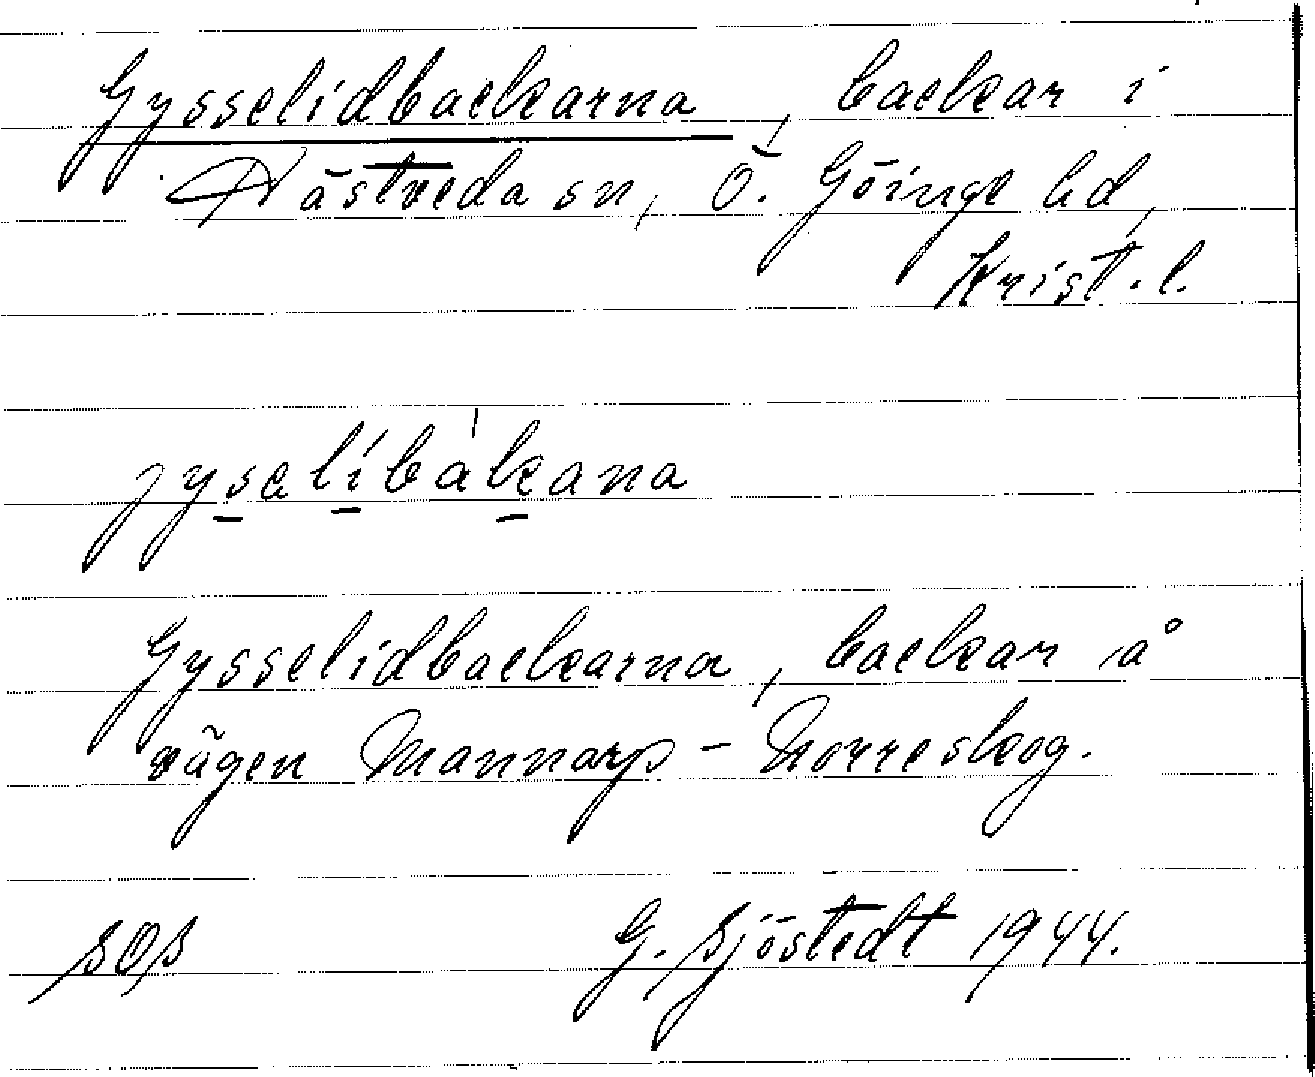 Gysselidbackarna, backar i
Västveda sn, Ö. Göinge hd,
Krist. l.
jysalíbàkana
Gysselidbackarna, backar å
vägen Mannarp - Norreskog.
SOS G. Sjöstedt 1944.